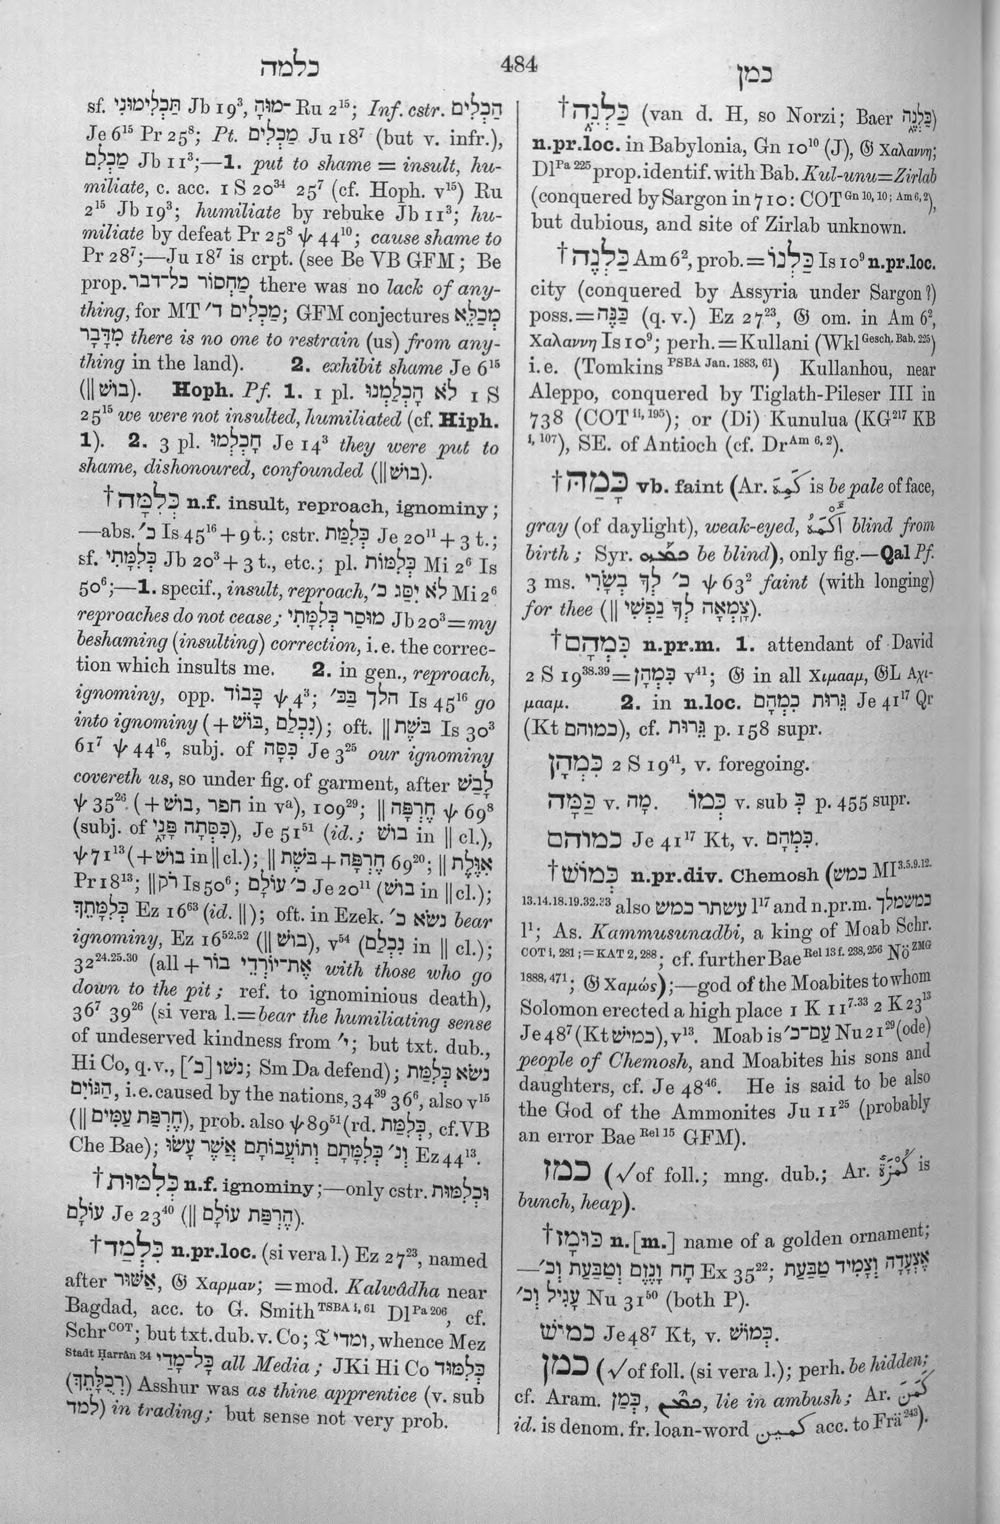 כלמה 484 כמן
sf. תַּכְלִימוּנִי Jb 19³, ־מוּהָ Ru 2¹⁵; Inf. cstr. הַכְלִים
Je 6¹⁵ Pr 25⁸; Pt. מַכְלִים Ju 18⁷ (but v. infr.),
מַכְלִם Jb 11³;—1. put to shame = insult, hu-
miliate, c. acc. 1 S 20³⁴ 25⁷ (cf. Hoph. v¹⁵) Ru
2¹⁵ Jb 19³; humiliate by rebuke Jb 11³; hu-
miliate by defeat Pr 25⁸ ψ 44¹⁰; cause shame to
Pr 28⁷;—Ju 18⁷ is crpt. (see Be VB GFM; Be
prop. מַחְסוֹר כל־דבר there was no lack of any-
thing, for MT מַכְלִים ד׳; GFM conjectures מִכְלֵּא
מִדָּבָר there is no one to restrain (us) from any-
thing in the land). 2. exhibit shame Je 6¹⁵
(‖בוש). Hoph. Pf. 1. 1 pl. לֹא הָכְלַמְנוּ 1 S
25¹⁵ we were not insulted, humiliated (cf. Hiph.
1). 2. 3 pl. הָכְלְמוּ Je 14³ they were put to
shame, dishonoured, confounded (‖בושׁ).
†כְּלִמָּה n.f. insult, reproach, ignominy;
—abs. כ׳ Is 45¹⁶ + 9 t.; cstr. כְּלִמַּת Je 20¹¹ + 3 t.;
sf. כְּלִמָּתִי Jb 20³ + 3 t., etc.; pl. כְּלִמּוֹת Mi 2⁶ Is
50⁶;—1. specif., insult, reproach, לֹא יִסַּג כ׳ Mi 2⁶
reproaches do not cease; מוּסַר כְּלִמָּתִי Jb 20³ = my
beshaming (insulting) correction, i.e. the correc-
tion which insults me. 2. in gen., reproach,
ignominy, opp. כָּבוֹד ψ 4³; הלך בַּכּ׳ Is 45¹⁶ go
into ignominy (+ בּוֹשׁ, נִכְלַם); oft. ‖ בּשֶׁת Is 30³
61⁷ ψ 44¹⁶, subj. of כִּסָּה Je 3²⁵ our ignominy
covereth us, so under fig. of garment, after לָבַשׁ
ψ 35²⁶ (+ בושׁ, חפר in vª), 109²⁹; ‖ חֶרְפָּה ψ 69⁸
(subj. of כִּסְּתָה פָנָי), Je 51⁵¹ (id.; בושׁ in ‖ cl.),
ψ 71¹³ (+ בושׁ in ‖ cl.); ‖ חֶרְפָּה + בּשֶׁת 69²⁰; ‖ אִוֶּלֶת
Pr 18¹³; ‖ רֹק Is 50⁶; כ׳ עוֹלָם Je 20¹¹ (בושׁ in ‖ cl.);
כְּלִמָּתֵךְ Ez 16⁶³ (id. ‖); oft. in Ezek. נשׂא כ׳ bear
ignominy, Ez 16⁵²·⁵² (‖ בושׁ), v⁵⁴ (נִכְלָם in ‖ cl.);
32²⁴·²⁵·³⁰ (all + אֶת־יוֹרְדֵי בוֹר with those who go
down to the pit; ref. to ignominious death),
36⁷ 39²⁶ (si vera l. = bear the humiliating sense
of undeserved kindness from י׳; but txt. dub.,
Hi Co, q.v., [כ׳] וְנָשׁוּ; Sm Da defend); נשׂא כְּלִמַּת
הַגּוֹיִם, i.e. caused by the nations, 34²⁹ 36⁶, also v¹⁵
(‖ חֶרְפַּת עַמִּים), prob. also ψ 89⁵¹ (rd. כְּלִמַּת, cf. VB
Che Bae); וְנ׳ כְּלִמָּתָם וְתוֹעֲבוֹתָם אֲשֶׁר עָשׂוּ Ez 44¹³.
†כְּלִמּוּת n.f. ignominy;—only cstr. וּכְלִמּוּת
עוֹלָם Je 23⁴⁰ (‖ חֶרְפַּת עוֹלָם).
†כִּלְמַד n.pr.loc. (si vera l.) Ez 27²³, named
after אַשּׁוּר, 𝔊 Χαρμαν; = mod. Kalwâdha near
Bagdad, acc. to G. Smith TSBA i, 61 Dl Pa 206, cf.
Schr COT; but txt. dub. v. Co; 𝔗 ומדי, whence Mez
Stadt Ḥarrân 34 כָּל־מָדַי all Media; JKi Hi Co כְּלִמּוּד
(רְכֻלָּתֵךְ) Asshur was as thine apprentice (v. sub
למד) in trading; but sense not very prob.
†כַּלְנֵה (van d. H, so Norzi; Baer כַּלְנֶה)
n.pr.loc. in Babylonia, Gn 10¹⁰ (J), 𝔊 Χαλαννη;
Dl Pa 225 prop. identif. with Bab. Kul-unu=Zirlab
(conquered by Sargon in 710: COT Gn 10, 10; Am 6, 2),
but dubious, and site of Zirlab unknown.
†כַּלְנֵה Am 6², prob. = כַּלְנוֹ Is 10⁹ n.pr.loc.
city (conquered by Assyria under Sargon?)
poss. = כַּנֵּה (q.v.) Ez 27²³, 𝔊 om. in Am 6²,
Χαλαννη Is 10⁹; perh. = Kullani (Wkl Gesch. Bab. 225)
i.e. (Tomkins PSBA Jan. 1883, 61) Kullanhou, near
Aleppo, conquered by Tiglath-Pileser III in
738 (COT ii, 195); or (Di) Kunulua (KG 217 KB
i, 107), SE. of Antioch (cf. Dr Am 6, 2).
†כָּמַהּ vb. faint (Ar. كَمِهَ is be pale of face,
gray (of daylight), weak-eyed, أَكْمَهُ blind from
birth; Syr. be blind), only fig.—Qal Pf.
3 ms. כ׳ לְךָ בְשָׂרִי ψ 63² faint (with longing)
for thee (‖ צָמְאָה לְךָ נַפְשִׁי).
†כִּמְהָם n.pr.m. 1. attendant of David
2 S 19³⁸·³⁹ = כִּמְהָן v⁴¹; 𝔊 in all Χιμααμ, 𝔊L Αχι-
μααμ. 2. in n.loc. גֵּרוּת כִּמְהָם Je 41¹⁷ Qr
(Kt כמוהם), cf. גֵּרוּת p. 158 supr.
כִּמְהָן 2 S 19⁴¹, v. foregoing.
כַּמָּה v. מָה. כְּמוֹ v. sub כְּ p. 455 supr.
כמוהם Je 41¹⁷ Kt, v. כִּמְהָם.
†כְּמוֹשׁ n.pr.div. Chemosh (כמש MI³·⁵·⁹·¹²·
¹³·¹⁴·¹⁸·¹⁹·³²·³³ also עשתר כמש l¹⁷ and n.pr.m. כמשמלך
l¹; As. Kammusunadbi, a king of Moab Schr.
COT i, 281; = KAT 2, 288; cf. further Bae Rel 13 f. 238, 256 Nö ZMG
1888, 471; 𝔊 Χαμώς);—god of the Moabites to whom
Solomon erected a high place 1 K 11⁷·³³ 2 K 23¹³
Je 48⁷ (Kt כמיש), v¹³. Moab is עַם־כ׳ Nu 21²⁹ (ode)
people of Chemosh, and Moabites his sons and
daughters, cf. Je 48⁴⁶. He is said to be also
the God of the Ammonites Ju 11²⁵ (probably
an error Bae Rel 15 GFM).
כמז (√of foll.; mng. dub.; Ar. كُمْزَةٌ is
bunch, heap).
†כּוּמָז n.[m.] name of a golden ornament;
—חָח וָנֶזֶם וְטַבַּעַת וְכ׳ Ex 35²²; אֶצְעָדָה וְצָמִיד טַבַּעַת
עָגִיל וְכ׳ Nu 31⁵⁰ (both P).
כמיש Je 48⁷ Kt, v. כְּמוֹשׁ.
כמן (√of foll. (si vera l.); perh. be hidden;
cf. Aram. כְּמַן, lie in ambush; Ar. كَمَنَ
id. is denom. fr. loan-word كمين acc. to Frä 243).